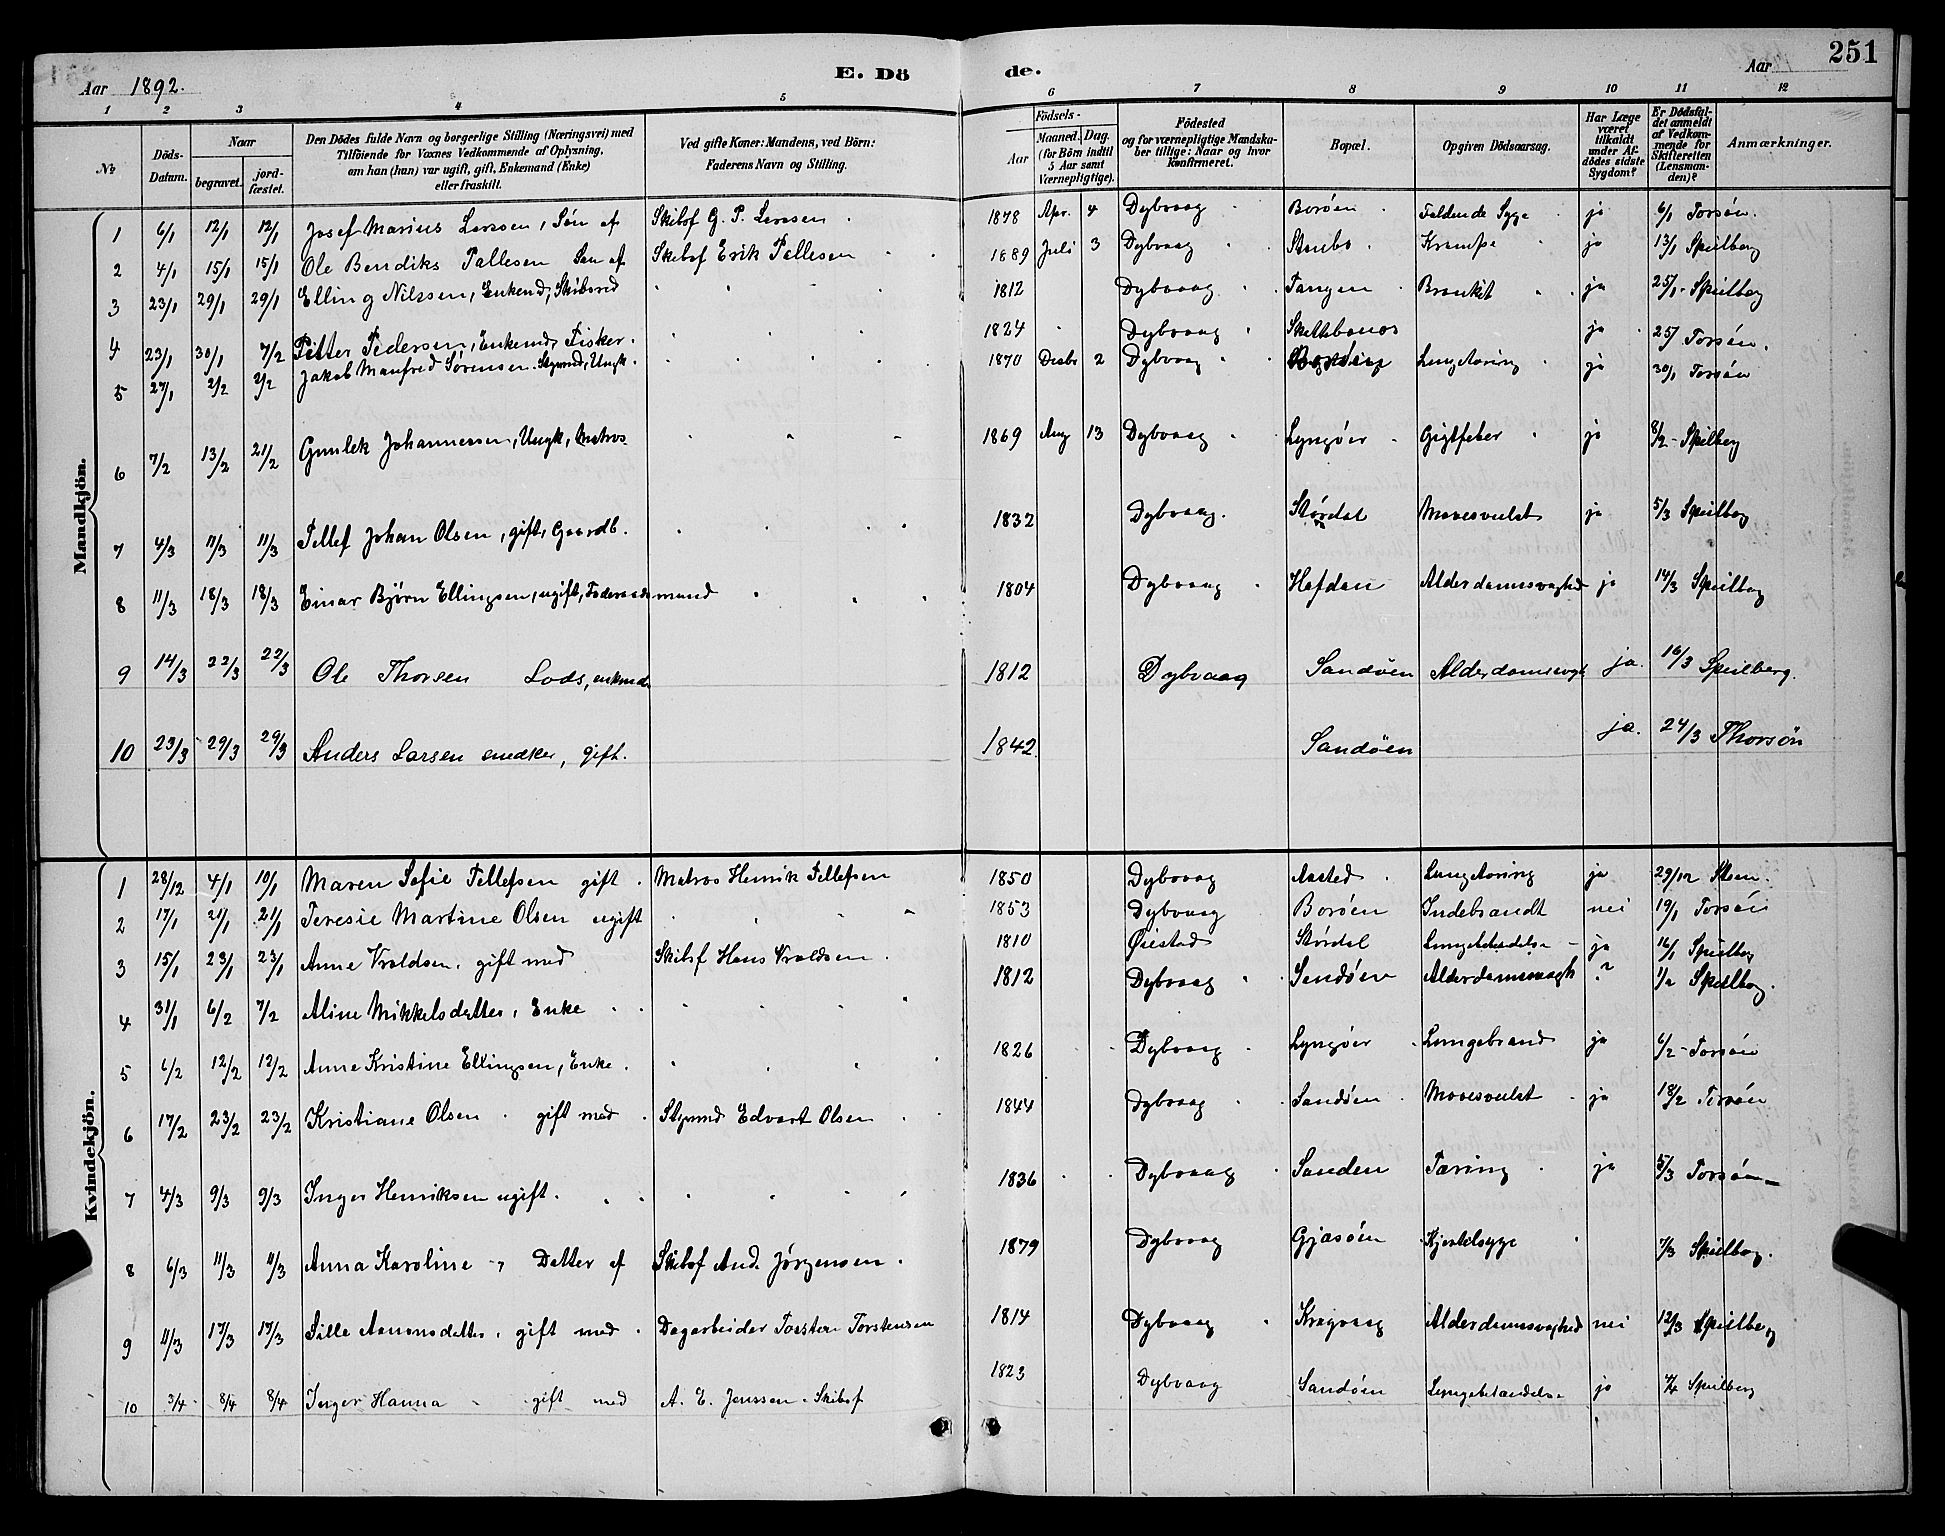 251
Aar 1892.
E. Dö de.
Aar
1 2 3 4 5 6 7 8 9 10 11 12
№
Döds-Datum.
Naar
begravet.
jord-fæstet.
Den Dödes fulde Navn og borgerlige Stilling (Næringsvei) med
Tilföiende for Voxnes Vedkommende af Oplysning,
om han (hun) var ugift, gift, Enkemand (Enke)
eller fraskilt.
Ved gifte Koner: Mandens, ved Börn:
Faderens Navn og Stilling.
Födsels-
Aar
Maaned. Dag.
(for Börn indtil
5 Aar samt
Værnepligtige).
Födested
og for værnepligtige Mandska-
ber tillige: Naar og hvor
konfirmeret.
Bopæl.
Opgiven Dödsaarsag.
Har Læge
været
tilkaldt
under Af-
dödes sidste
Sygdom?
Er Dödsfal-
det anmeldt
af Vedkom-
mende for
Skifteretten
(Lensman-
den)?
Anmærkninger.
Mandkjön.
1 6/1 12/1 12/1 Josef Marius Larssen, Sön af Skibsf G. P. Larssen 1878 Apr. 4 Dybvaag Boröen Faldende Syge ja 6/1 Torsön.
2 4/1 15/1 15/1 Ole Bendiks Tallesen Søn af Skibsf Erik Tallesen 1889 Juli 3 Dybvaag Stensbo Krampe ja 13/1 Speilberg
3 23/1 29/1 29/1 Elling Nilssen, Enkemd, Skibsred 1812 Dybvaag Tangen Bronkit ja 25/1 Speilberg
4 23/1 30/1 7/2 Pitter Pedersen, Enkemd, Fisker 1824 Dybvaag ja 25/ Torsön.
5 27/1 2/2 2/2 Jakob Manfred Sörensen. Styrmd, Ungk. 1870 Decbr 2 Dybvaag Lungetæring ja 30/1 Torsön
6 7/2 13/2 21/2 Gunlek Johannessen, Ungk, Matros 1869 Aug 13 Dybvaag Lyngöer Gigtfeber ja 8/2 Speilberg
7 4/3 11/3 11/3 Tellef Johan Olsen, gift, Gaardb. 1832 Dybvaag. Størdal Mavesvulst ja 5/3 Speilberg
8 11/3 18/3 18/3 Einar Bjørn Ellingsen, ugift, Föderaadsmand 1804 Dybvaag Hefdan Alderdomssvaghed ja 14/3 Speilberg
9 14/3 22/3 22/3 Ole Thorsen Lods, enkemd 1812 Dybvaag Sandöen Alderdomssvagh ja. 16/3 Speilberg.
10 23/3 29/3 29/3 Anders Larsen snedker, gift. 1842 Sandöen ja. 24/3 Thorsön
Kvindekjön.
1 28/12 4/1 10/1 Maren Sofie Tellefsen gift Matros Henrik Tellefsen 1850 Dybvaag Aasted Lungetæring ja 29/12 Steen
2 17/1 21/1 21/1 Teresie Martine Olsen ugift 1853 Dybvaag Boröen Indebrandt nei 19/1 Torsön
3 15/1 23/1 23/1 Anne Vroldsen, gift med Skibsf Hans Vroldsen 1810 Öiestad Størdal Lungebetændelse ja 16/1 Speilberg
4 31/1 6/2 7/2 Aline Mikkelsdatter, Enke 1812 Dybvaag Sandöen Alderdomssvagh ? 1/2 Speilberg.
5 6/2 12/2 12/2 Anne Kristine Ellingsen, Enke. 1826 Dybvaag Lyngöer Lungebrand ja 6/2 Torsön
6 17/2 23/2 23/2 Kristiane Olsen gift med Styrmd Edvart Olsen 1844 Dybvaag Sandöen Mavesvulst ja 18/2 Torsön
7 4/3 9/3 9/3 Inger Henriksen ugift. 1836 Dybvaag Sanden Tæring ja 5/3 Torsön
8 6/3 11/3 11/3 Anna Karoline Datter af Skibsf And. Jørgensen. 1879 Dybvaag Gjæsöen Kjertelsyge 7/3 Speilberg.
9 11/3 17/3 17/3 Sille Aanonsdatter, gift med Dagarbeider Torsten Torstensen 1814 Dybvaag Kragvaag Alderdomssvaghed nei 12/3 Speilberg
10 3/4 8/4 8/4 Inger Hanna gift med A. E. Jenssen Skibsf 1823 Dybvaag Sandöen Lungebetændelse ja 4/4 Speilberg